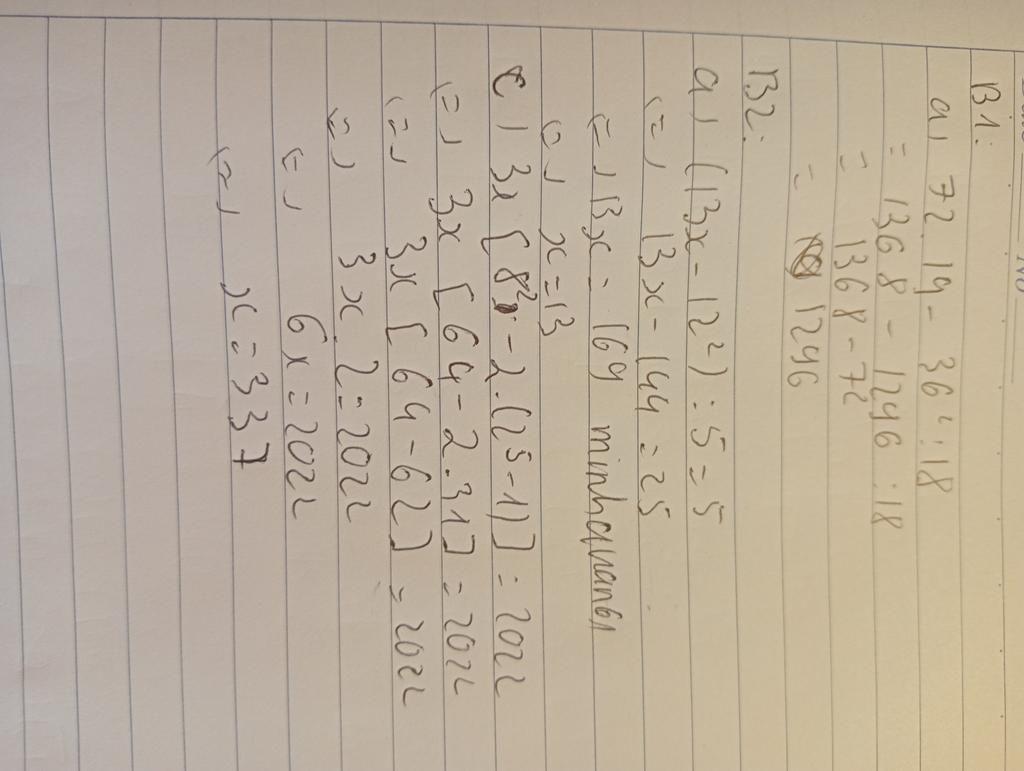 No
B1:
a) 72.19 - 36² : 18
= 1368 - 1296 : 18
= 1368 - 72
= 1296
B2:
a) (13x - 12²) : 5 = 5
(=) 13x - 144 = 25
(=) 13x = 169 minhquan61
(=) x = 13
c) 3x [ 8² - 2.(2⁵ - 1)] = 2022
(=) 3x [ 64 - 2.31] = 2022
(=) 3x [ 64 - 62] = 2022
(=) 3x.2 = 2022
(=) 6x = 2022
(=) x = 337